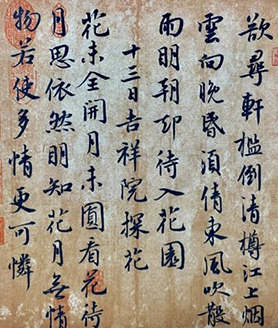 欲尋軒檻倒清樽江上烟
雲向晚昏須倩東風吹散
雨明朝却待入花園
十三日吉祥院探花
花未全開月未圓看花待
月思依然明知花月無情
物若使多情更可憐